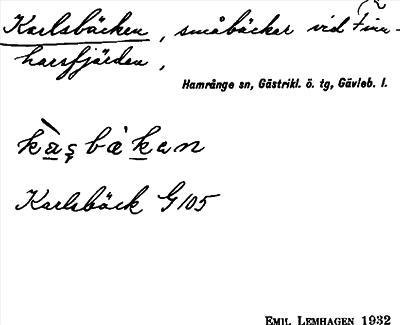 Karlsbäcken, småbäckar vid Finn-
harsfjärden,
Hamrånge sn, Gästrikl. ö. tg, Gävleb. l.
kàs̨bákan
Karlsbäck G 105
EMIL LEMHAGEN 1932